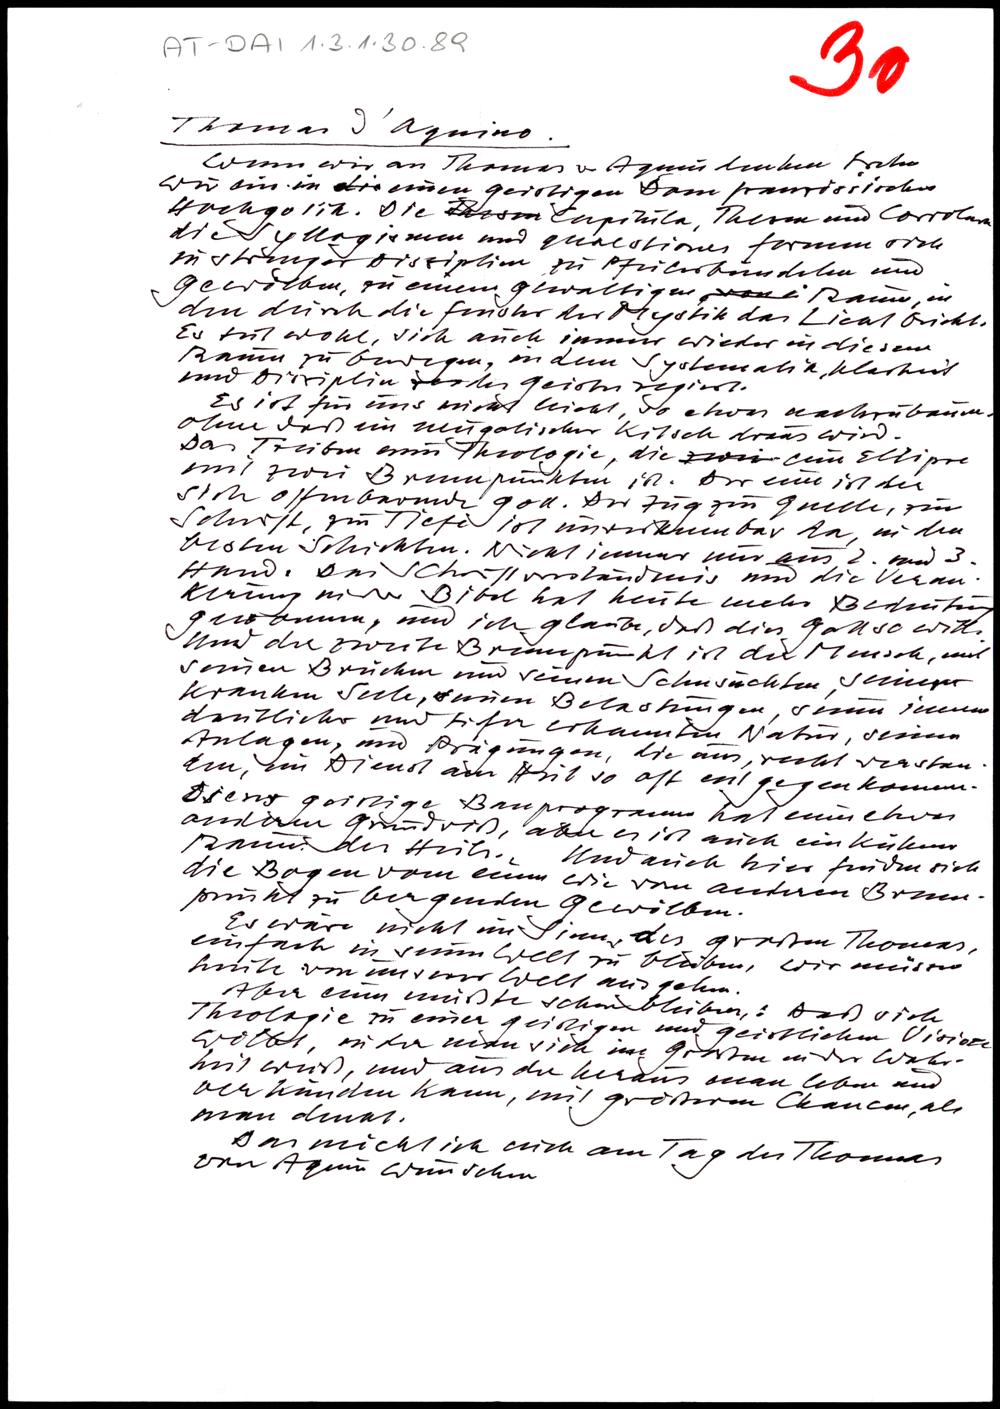 AT-DAI 1.3.1.30.89
30
Thomas d'Aquino.
Wenn wir an Thomas v Aquin denken treten
wir ein in die einen geistigen Dom französischer
Hochgotik. Die Thesen Capitula, Thesen und Corrolarien
die Syllogismen und quaestiones formen sich
in strenger Disziplin zu Pfeilerbündeln und
Gewölben, zu einem gewaltigen Raum, in
den durch die Fenster der Mystik das Licht bricht.
Es tut wohl, sich auch immer wieder in diesem
Raum zu bewegen, in dem Systematik, Klarheit
und Disziplin des Geistes regiert.
Es ist für uns nicht leicht, so etwas nachzubauen.
ohne daß ein neugotischer Kitsch draus wird.
Das Treiben einer Theologie, die zwei eine Ellipse
mit zwei Brennpunkten ist. Der eine ist der
sich offenbarende Gott. Der Zug zur Quelle, zur
Schrift, zur Tiefe ist unverkennbar da, in den
besten Schichten. Nicht immer nur aus 2. und 3.
Hand. Das Schriftverständnis und die Veran-
kerung in der Bibel hat heute mehr Bedeutung
gewonnen, und ich glaube, daß dies Gott so will.
Und der zweite Brennpunkt ist der Mensch, mit
seinen Brüchen und seinen Sehnsüchten, seiner
kranken Seele, seinen Belastungen, seiner immer
deutlicher und tiefer erkannten Natur, seinen
Anlagen, und Prägungen, die uns, recht verstan-
den, im Dienst am Heil so oft entgegenkommen.
Dieses geistige Bauprogramm hat einen etwas
anderen Grundriß, aber es ist auch ein kühner
Raum des Heils. Und auch hier finden sich
die Bogen vom einen wie vom anderen Brenn-
punkt zu bergenden Gewölben.
Es wäre nicht im Sinne des großen Thomas,
einfach in seiner Welt zu bleiben, wir müssen
heute von unserer Welt ausgehen.
Aber eines müßte schon bleiben: Daß sich
Theologie zu einer geistigen und geistlichen Vision
wölbt, in der man sich im Großen in der Wahr-
heit weiß, und aus der heraus man leben und
verkünden kann, mit größeren Chancen, als
man denkt.
Das möcht ich euch am Tag des Thomas
von Aquin wünschen